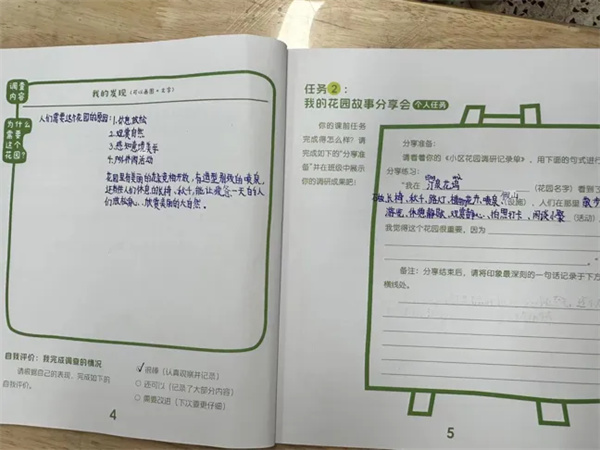 调查内容
我的发现（可以画图+文字）
为什么需要这个花园？
人们需要这个花园的原因：1.休息放松
2.观赏自然
3.感知意境美学
4.户外休闲活动
花园里有美丽的造型
还有供人们休息的长椅，秋千，能让疲惫一天的人
们放松静心、欣赏美丽的大自然。
自我评价：我完成调查的情况
请根据自己的表现，完成如下的
自我评价。
很棒（认真观察并记录）
○ 还可以（记录了大部分内容）
○ 需要改进（下次要更仔细）
4
任务2：
我的花园故事分享会 个人任务
你的课前任务
完成得怎么样？请
完成如下的“分享准
备”并在班级中展示
你的调研成果吧！
分享准备：
请看着你的《小区花园调研记录单》，用下面的句式进行
分享练习：
“我在（花园名字）看到了
长椅、秋千、路灯、植物花卉、喷泉、假山（设施），人们在那里 散步
休憩静默、观赏静心、拍照打卡、闲谈小聚（活动）
我觉得这个花园很重要，因为
备注：分享结束后，请将印象最深刻的一句话记录于下方
横线处。
5